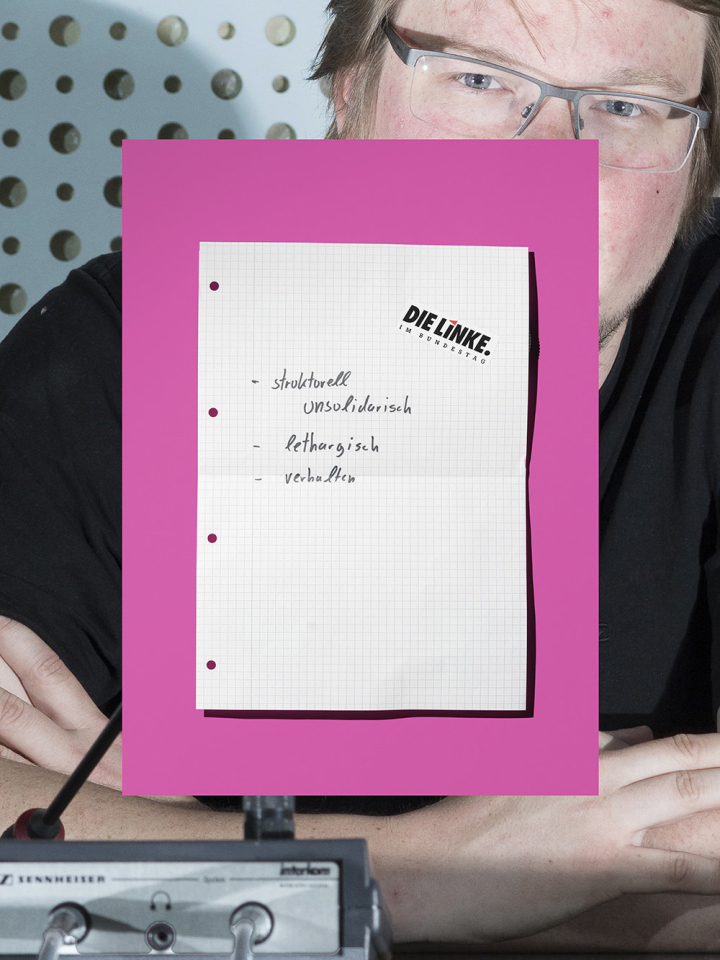 DIE LINKE.
IM BUNDESTAG
- strukturell
unsolidarisch
- lethargisch
- verhalten
SENNHEISER
interkom